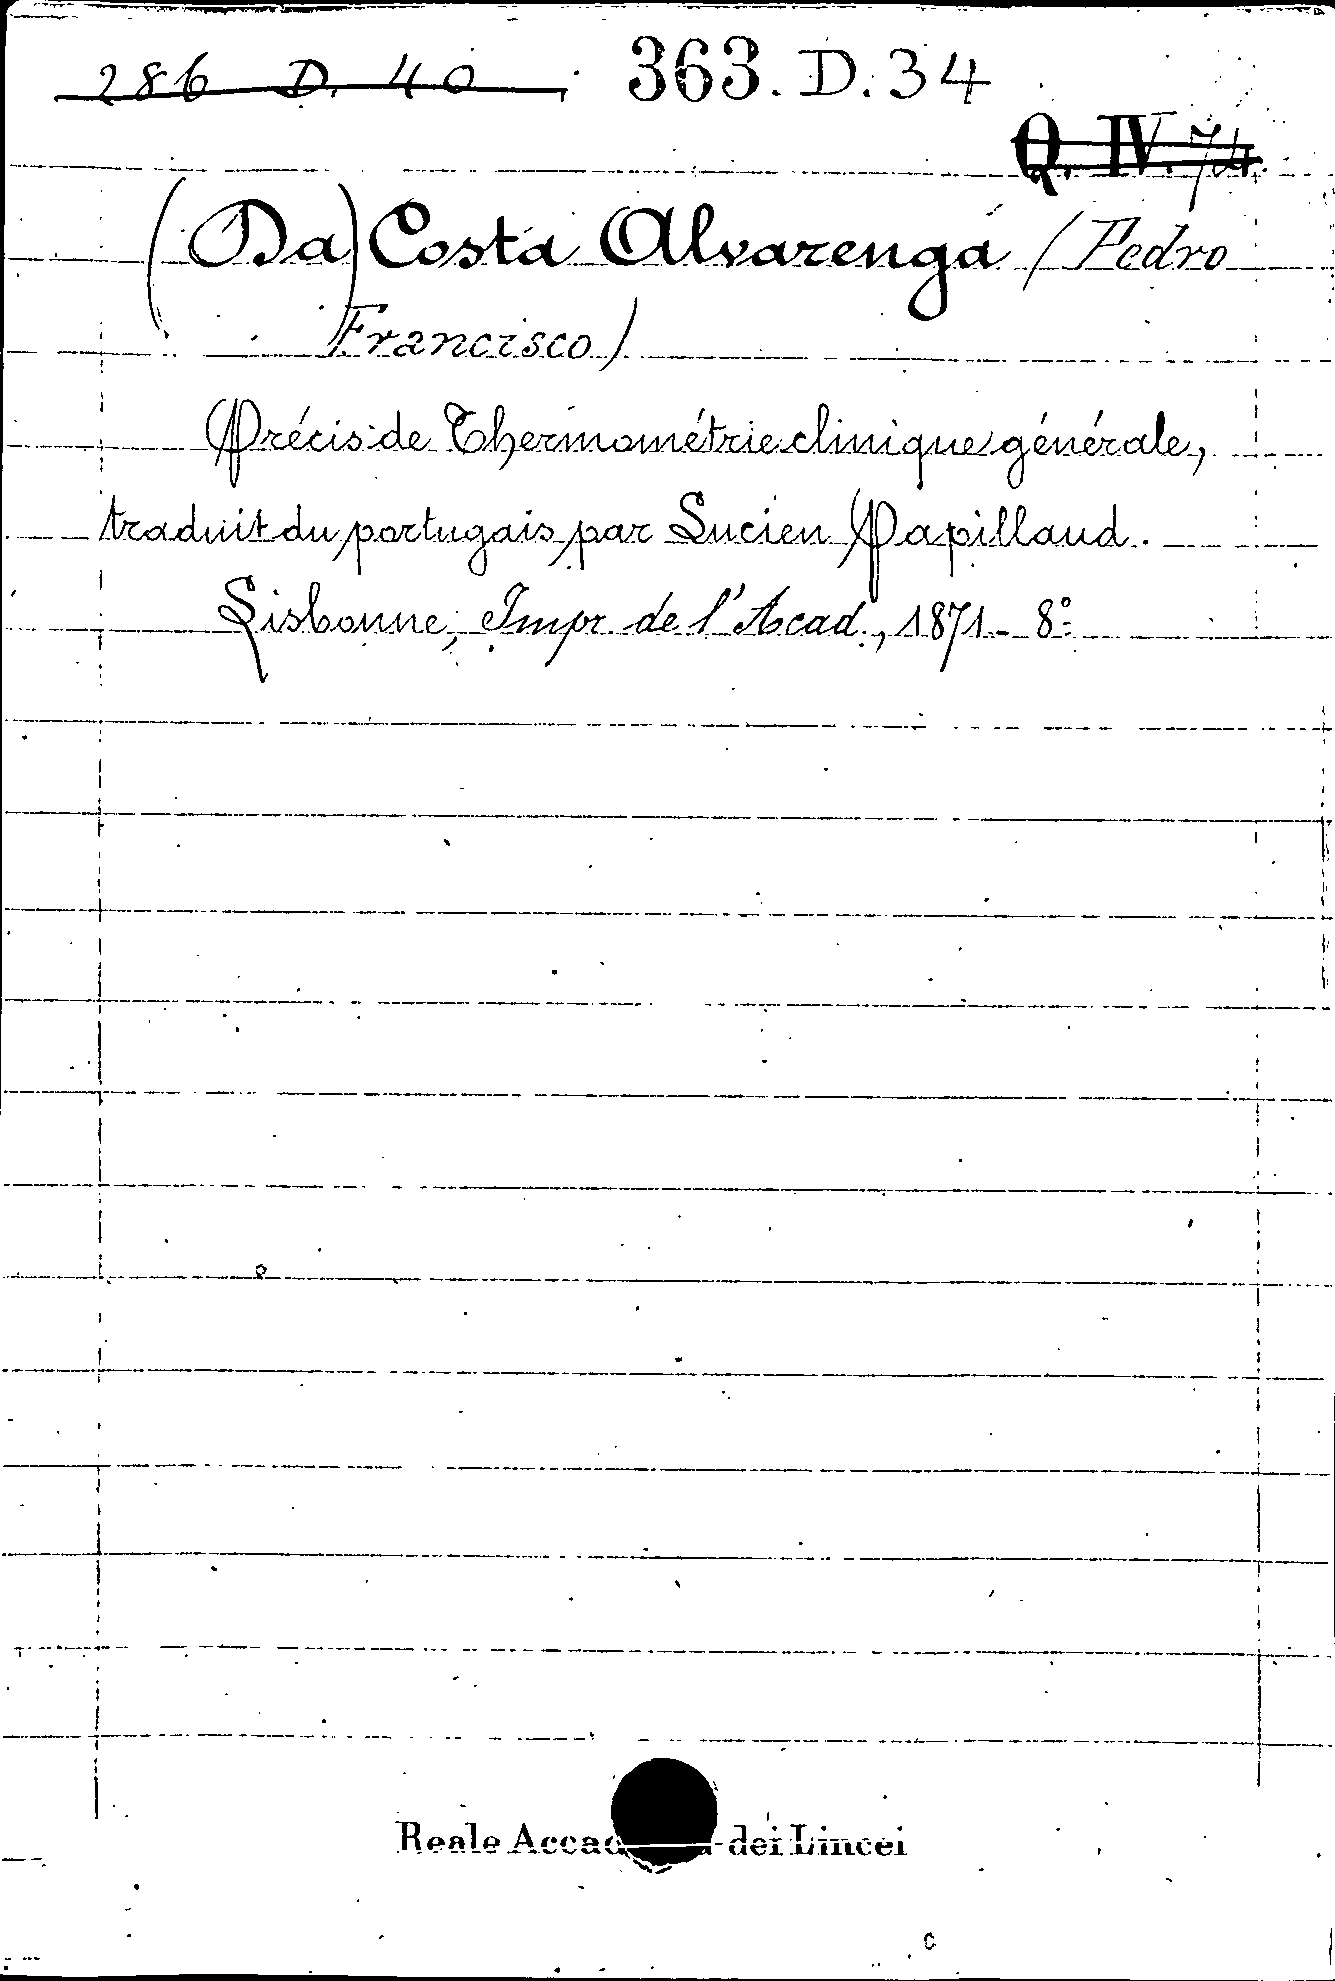 286 D. 40 363. D. 34
Q. IV. 74.
(Da) Costa Alvarenga (Pedro
Francisco)
Précis de Thermométrie clinique générale,
traduit du portugais par Lucien Papillaud.
Lisbonne, Impr. de l'Acad., 1871 - 8°
Reale Accademia dei Lincei